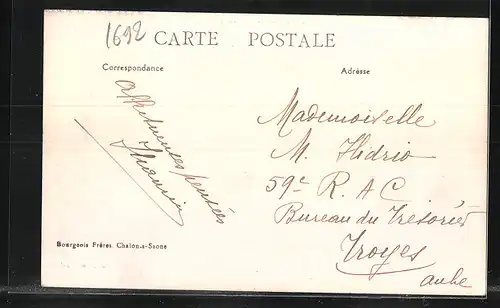 1692
CARTE POSTALE
Correspondance
Adresse
affectueuses pensées
Mademoiselle
M. Hidrio
59e R. A C
Bureau du Trésorier
Troyes
Aube
Bourgeois Frères, Chalon-s-Saone